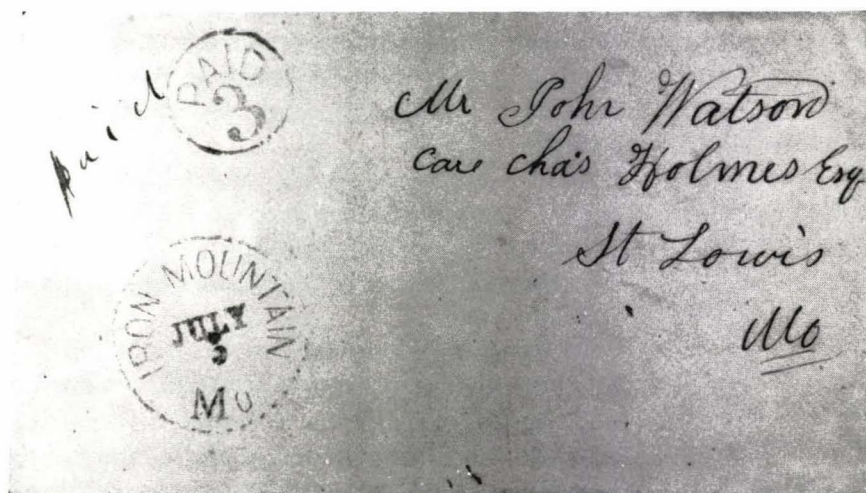 paid
PAID
3
Mr John Watson
Care Chas Holmes Esq
St Louis
Mo
IRON MOUNTAIN
JULY
Mo